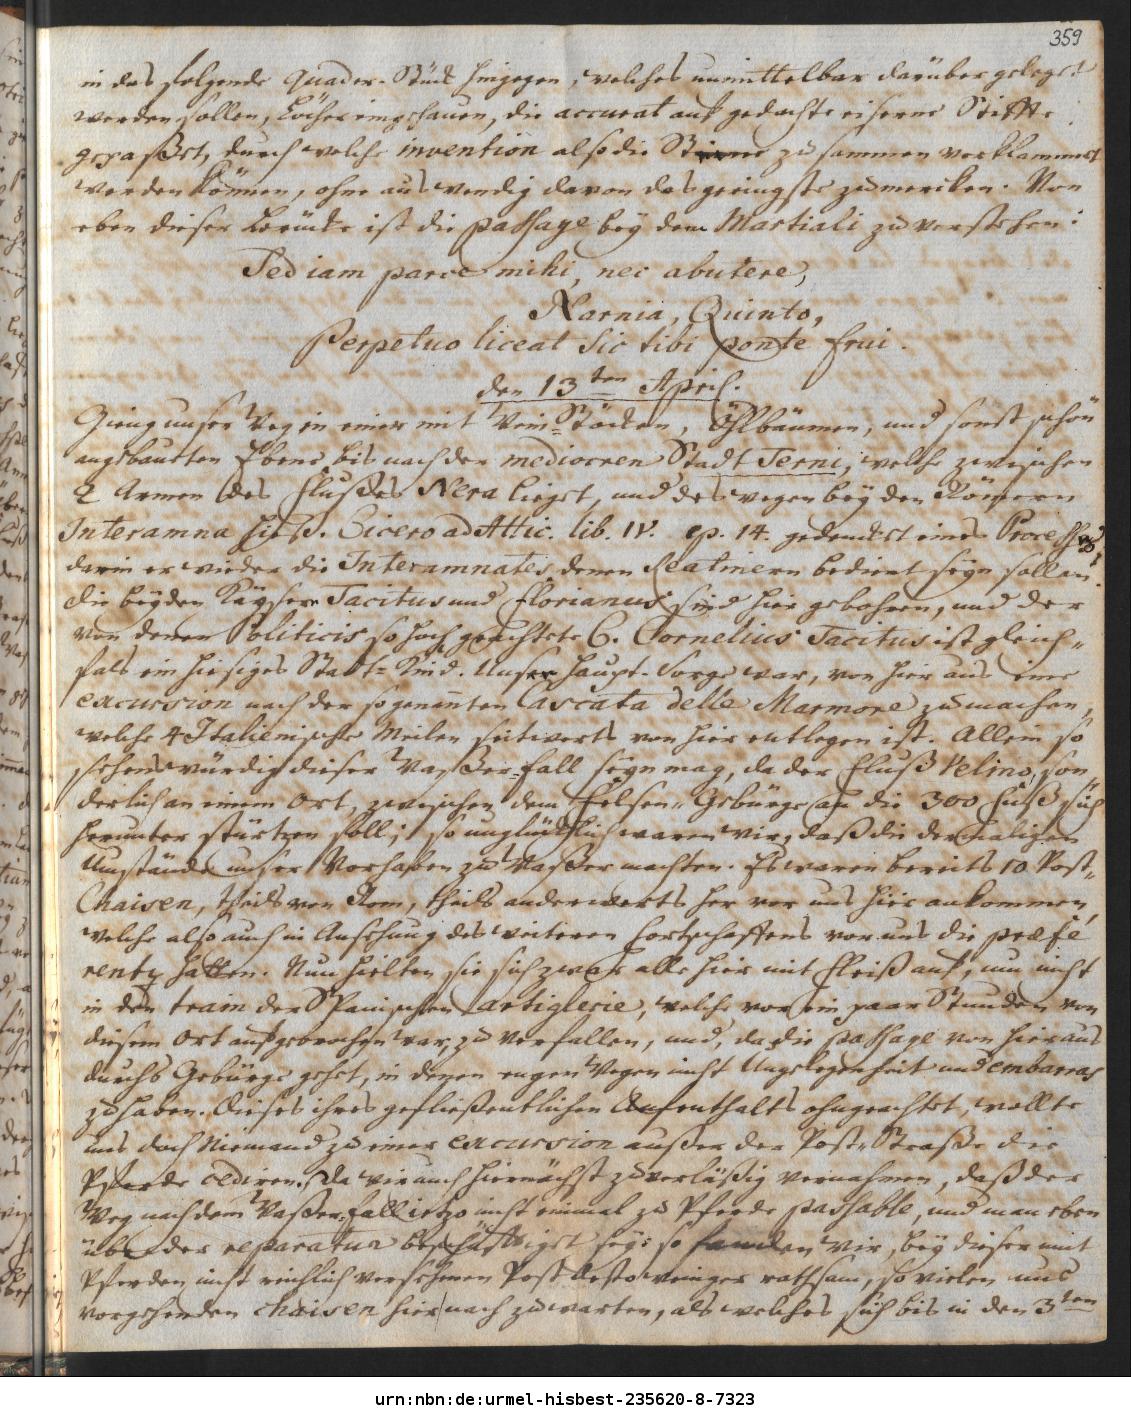 359
in das folgende Quader-Stück hingegen, welches unmittelbar darüber gelegt
werden sollen, Löcher eingehauen, die accurat auf gedachte eiserne Stiffte
gepaßet, durch welche invention also die Steine zusammen verklammert
werden können, ohne auswendig davon das geringste zu mercken. Von
eben dieser Brücke ist die passage bey dem Martiali zu verstehen:
Sed iam parce mihi, nec abutere,
Narnia, Quinto,
Perpetuo liceat sic tibi ponte frui.
den 13ten April.
Gieng unser Weg in einer mit Wein-Stöcken, Öhlbäumen, und sonst schön
angebauten Ebene bis nach der mediocren Stadt Terni, welche zwischen
2 Armen des Flußes Nera lieget, und deswegen bey den Römern
Interamna hieß. Cicero ad Attic. lib. IV. ep. 14. gedencket eines Processes,
darin er wieder die Interamnates denen Reatinern bedient seyn sollen.
Die beyden Kayser Tacitus und Florianus sind hier gebohren, und der
von denen Politicis so hoch geachtete C. Cornelius Tacitus ist gleich-
fals ein hiesiges Stadt-Kind. Unser Haupt-Sorge war, von hier aus eine
excursion nach der sogenannten Cascata delle Marmore zu machen,
welche 4 Italienische Meilen seitwerts von hier entlegen ist. Allein so
sehenswürdig dieser Waßer-fall seyn mag, da der Fluß Velino, son
derlich an einem Ort, zwischen dem Felsen-Gebürge an die 300 Fuß sich
herunter stürtzen soll; so unglücklich waren wir, daß die dermaligen
Umstände unser Vorhaben zu Waßer machten. Es waren bereits 10 Post-
Chaisen, theils von Rom, theils anderwerts her vor uns hier ankommen,
welche also auch in Ansehung des weiteren Fortschaffens vor uns die præfe
renz hatten. Nun hielten sie sich zwar alle hier mit Fleiß auf, um nicht
in den train der Spanischen artiglerie, welche vor ein paar Stunden von
diesem Ort aufgebrochen war, zu verfallen, und, da die passage von hier aus
durchs Gebürge gehet, in denen engen Wegen nicht Ungelegenheit und embarras
zu haben. Dieses ihres gefließentlichen Aufenthalts ohngeachtet, wollte
uns doch Niemand zu einer excursion außer der Post-Straße die
Pferde cediren. Da wir auch hiernächst zuverläßig vernahmen, daß der
Weg nach dem Waßer-fall ietzo nicht einmal zu Pferde passable, und man eben
über der reparatur beschäfftiget sey: so fanden wir, bey dieser mit
Pferden nicht reichlich versehenen Post desto weniger rathsam, so vielen uns
vorgehenden chaisen hier nach zu warten, als welches sich bis in den 3ten
urn:nbn:de:urmel-hisbest-235620-8-7323